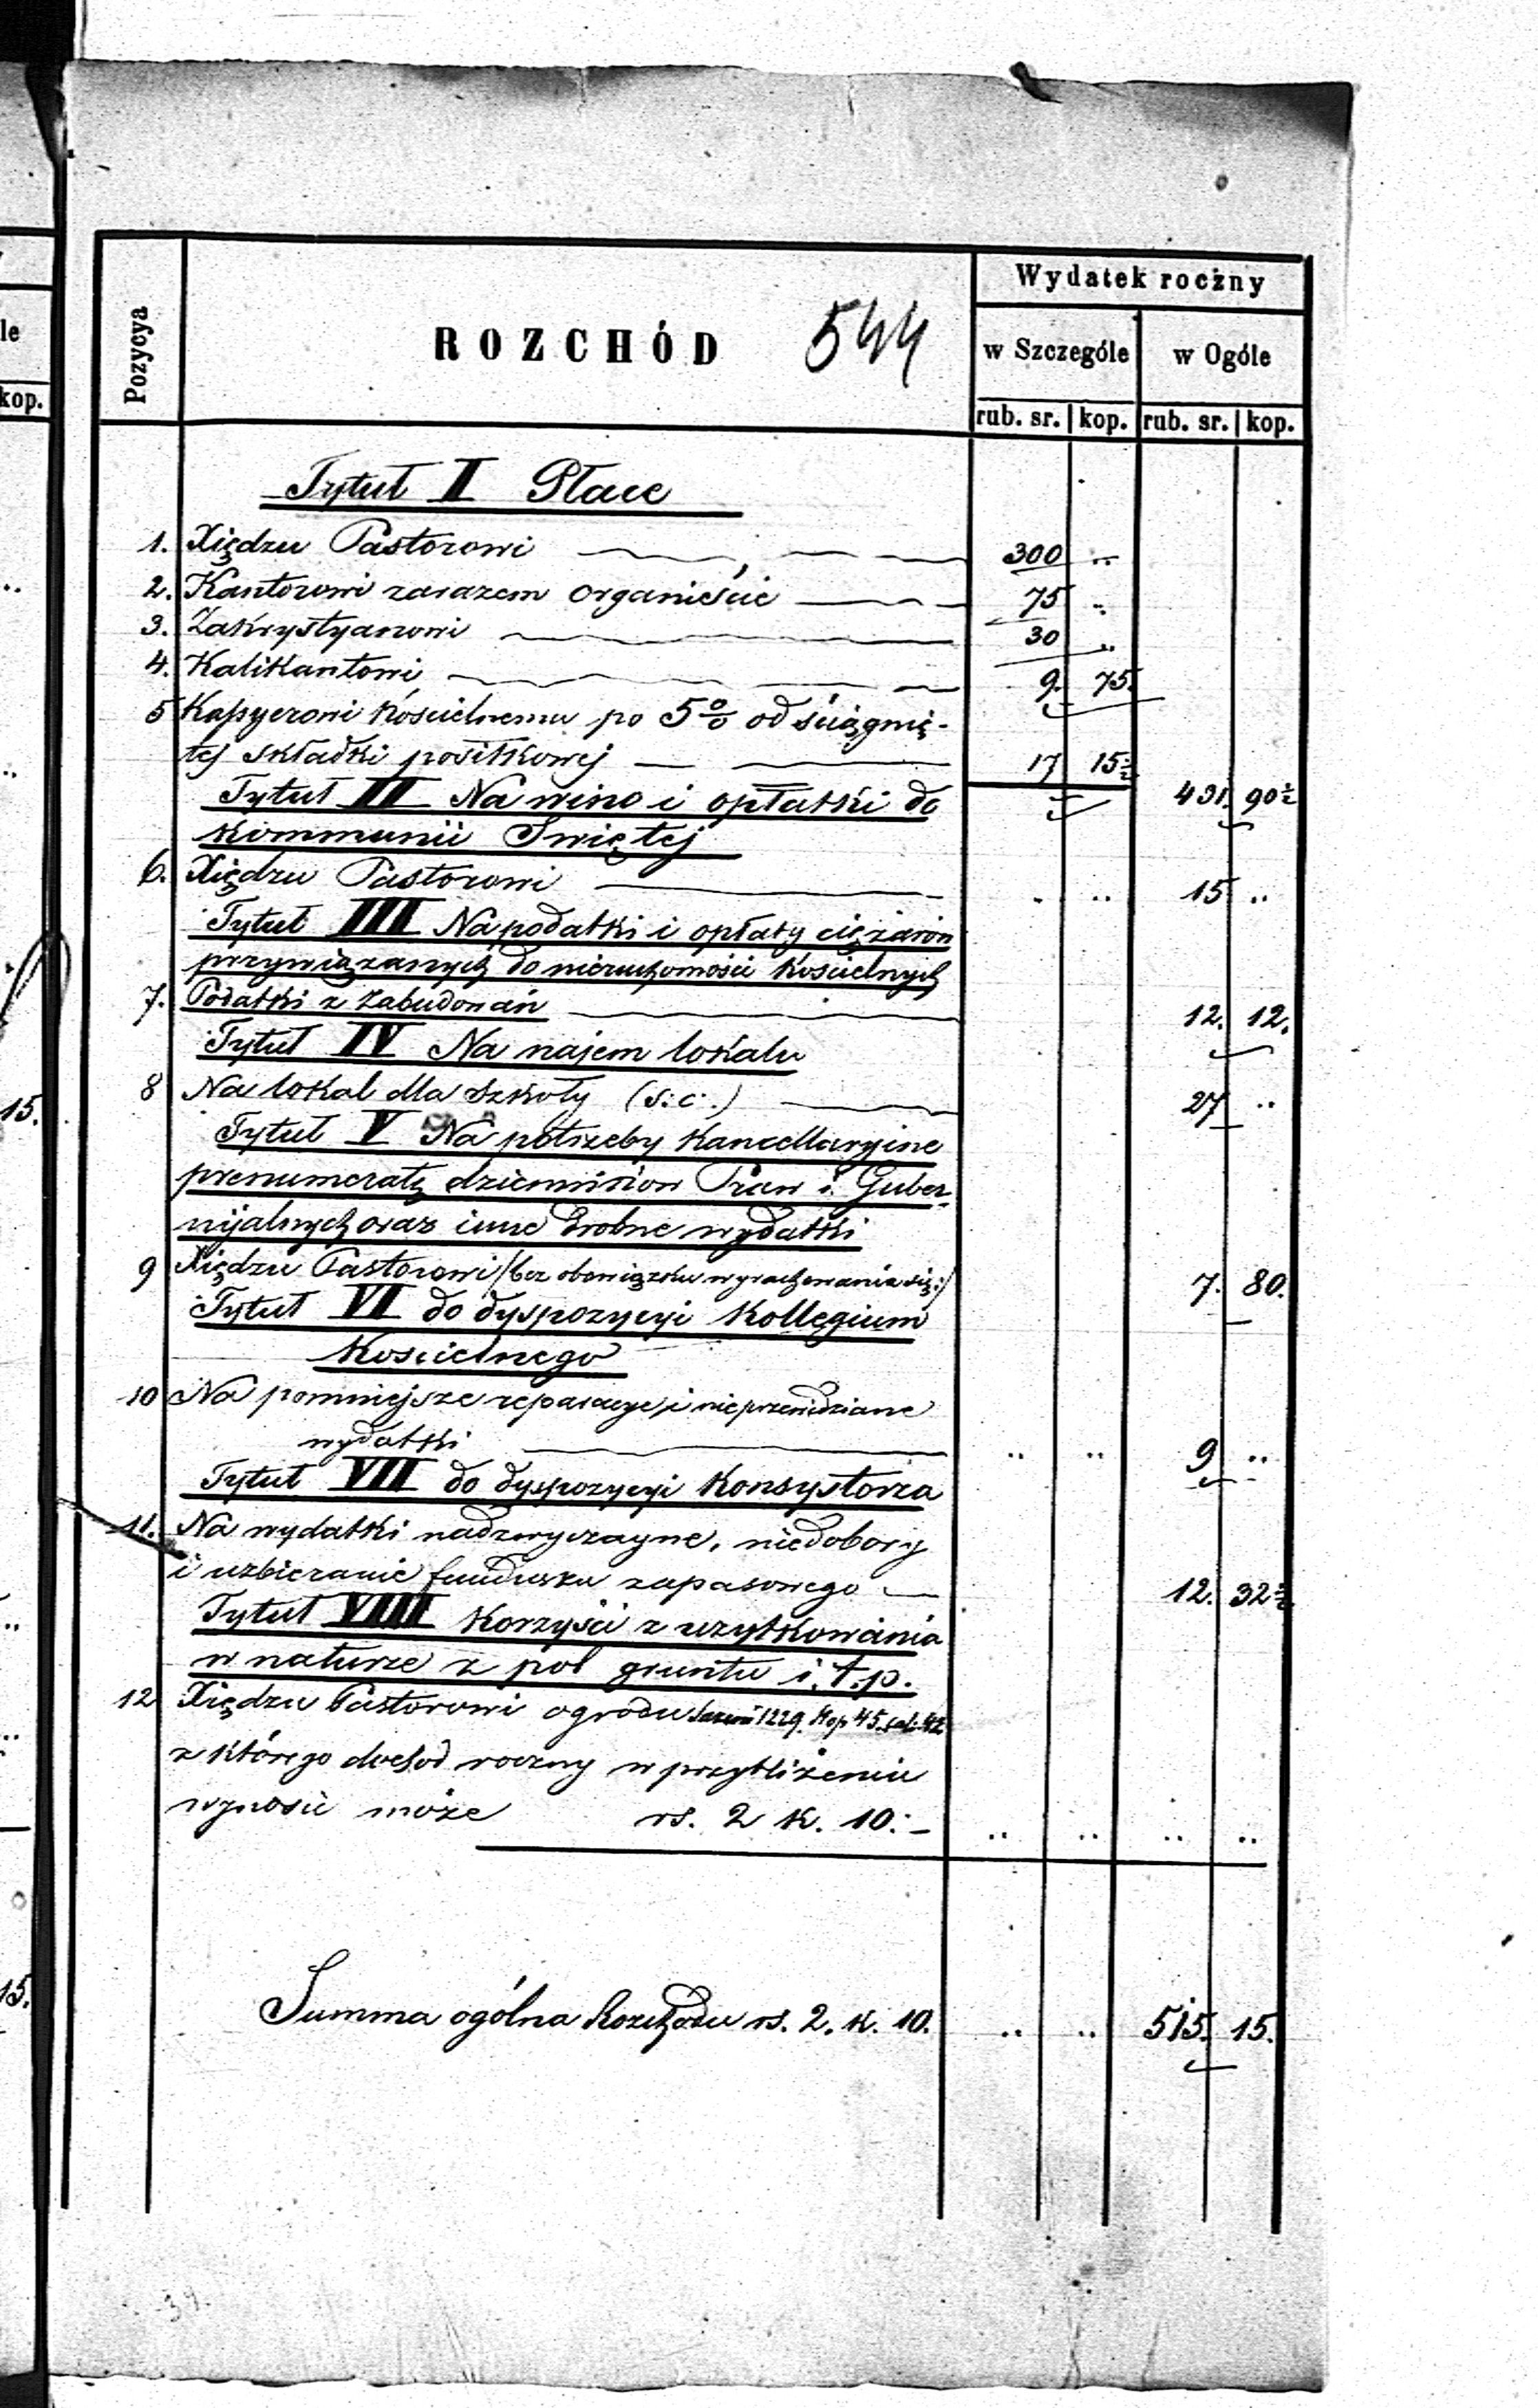 le
kop.
15.
15.
Pozycya
ROZCHÓD
544
Wydatek roczny
w Szczególe w Ogóle
rub. sr. kop. rub. sr. kop.
Tytuł I Płace
1. Xiędzu Pastorowi 300 ..
2. Kantorowi zarazem Organieście 75 ..
3. Zakrystyanowi 30 ..
4. Kalikantowi 9. 75.
5 Kassyerowi Kościelnemu po 5% od ściągnię-
tej składki posiłkowej 17 15½
Tytuł II Na wino i opłatki do 431. 90½
Kommunii Swiętej
6. Xiędzu Pastorowi . .. 15 ..
Tytuł III Na podatki i opłaty ciężarów
przywiązanych do nieruchomości Kościelnych
7. Podatki z Zabudowań 12. 12.
Tytuł IV Na najem lokalu
8 Na lokal dla szkoły (s:c:) 27 ..
Tytuł V Na potrzeby Kancellaryine
prenumeratę dzienników Praw i Guber-
nijalnych oraz inne drobne wydatki
9 Xiędzu Pastorowi /bez obowiązku wyrachowania się:/ 7. 80.
Tytuł VI do dyspozycyi Kollegium
Kościelnego
10 Na pomniejsze reparacye i nieprzewidziane
wydatki .. .. 9 ..
Tytuł VII do dyspozycyi Konsystorza
11. Na wydatki nadzwyczayne, niedobory
i uzbieranie funduszu zapasowego 12. 32½
Tytuł VIII Korzyści z użytkowania
w naturze z pol gruntu i.t.p.
12 Xiędzu Pastorowi ogrodu 1229. Stop 45.
z którego dochod roczny w przybliżeniu
wynosić może rs. 2 k. 10.- .. .. .. ..
Summa ogólna Rozchodu rs. 2. k. 10. .. .. 515. 15.